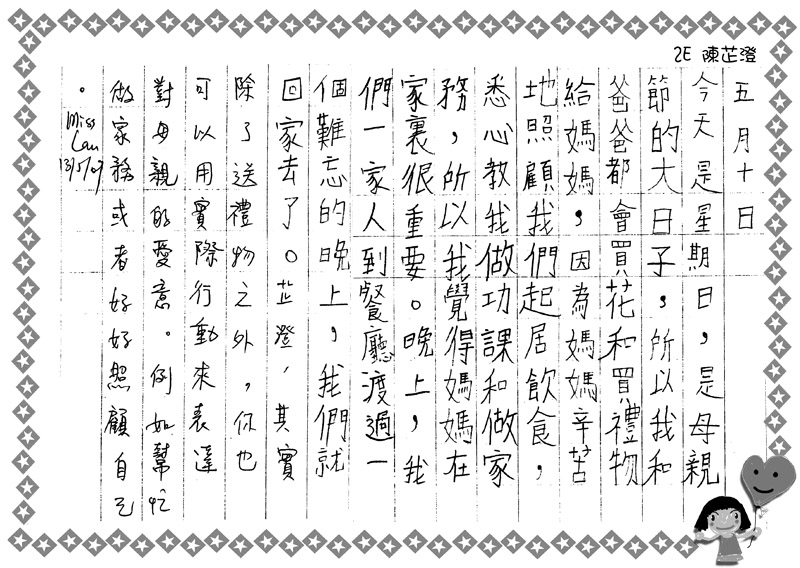 2E 陳芷澄
五月十日
今天是星期日，是母親
節的大日子，所以我和
爸爸都會買花和買禮物
給媽媽，因為媽媽辛苦
地照顧我們起居飲食，
悉心教我做功課和做家
務，所以我覺得媽媽在
家裏很重要。晚上，我
們一家人到餐廳渡過一
個難忘的晚上，我們就
回家去了。芷澄，其實
除了送禮物之外，你也
可以用實際行動來表達
對母親的愛意。例如幫忙
做家務或者好好照顧自己
。
Miss
Lau